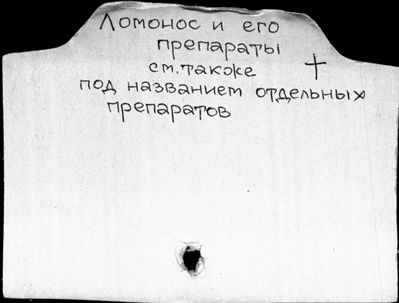 Ломонос и его
препараты
см. также
под названием отдельных
препаратов